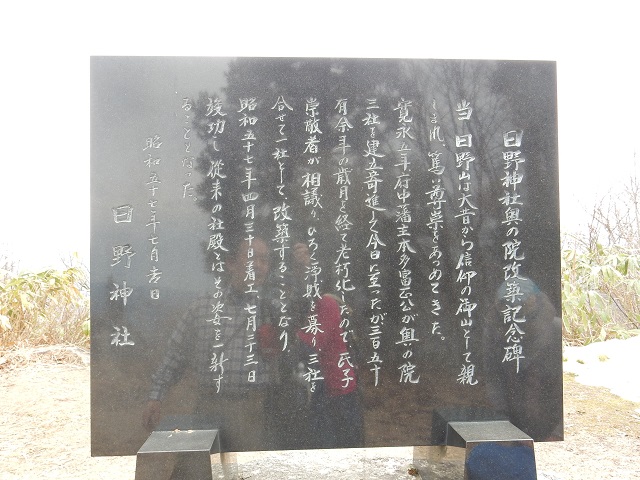 日野神社奥の院改築記念碑
当日野山は大昔から信仰の御山として親
しまれ、篤い尊崇をあつめてきた。
寛永五年府中藩主本多富正公が奥の院
三社を建立寄進し今日に至ったが三百五十
有余年の歳月を経て老朽化したので、氏子
崇敬者が相議り、ひろく浄財を募り、三社を
合せて一社として改築することとなり、
昭和五十七年四月三十日着工、七月二十三日
竣功し従来の社殿とはその姿を一新す
ることとなった
昭和五十七年七月吉日
日野神社